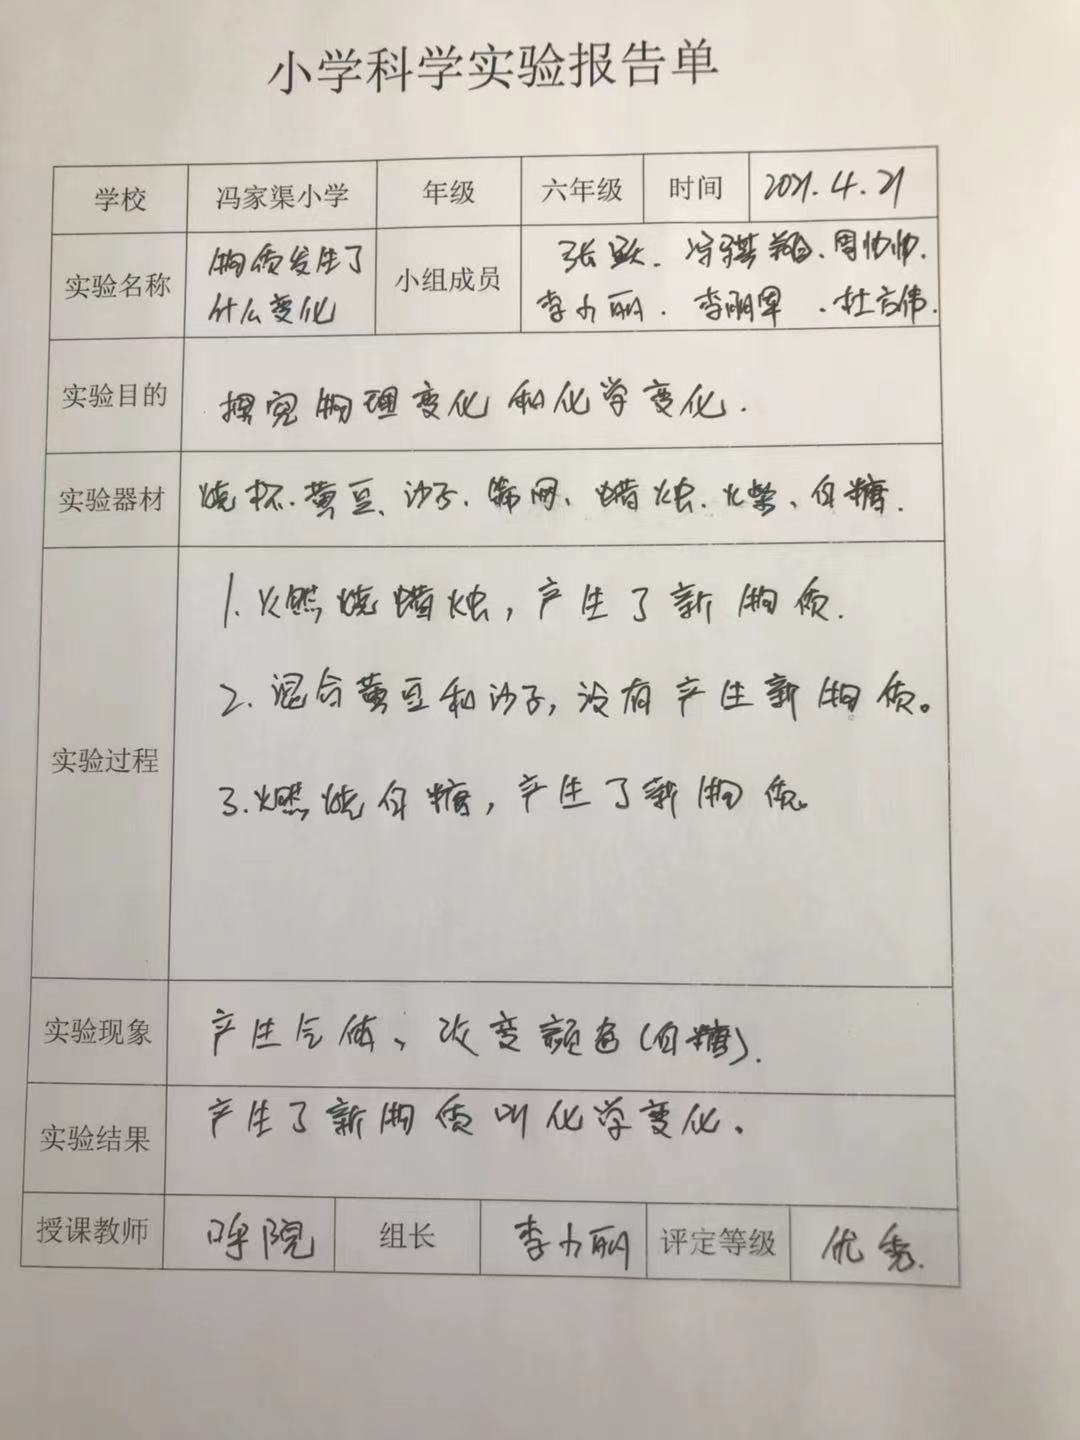 小学科学实验报告单
学校 冯家渠小学 年级 六年级 时间 2021.4.21
实验名称 物质发生了
什么变化
小组成员 张 . 冯 翔、周帅帅.
李 丽 . 李明 、杜 伟.
实验目的 探究物理变化和化学变化.
实验器材 烧杯、黄豆、沙子、筛网、蜡烛、火柴、白糖.
实验过程
1. 燃烧蜡烛,产生了新物质.
2. 混合黄豆和沙子,没有产生新物质。
3. 燃烧白糖,产生了新物质。
实验现象 产生气体、改变颜色(白糖).
实验结果 产生了新物质叫化学变化。
授课教师 院 组长 李 丽 评定等级 优秀.